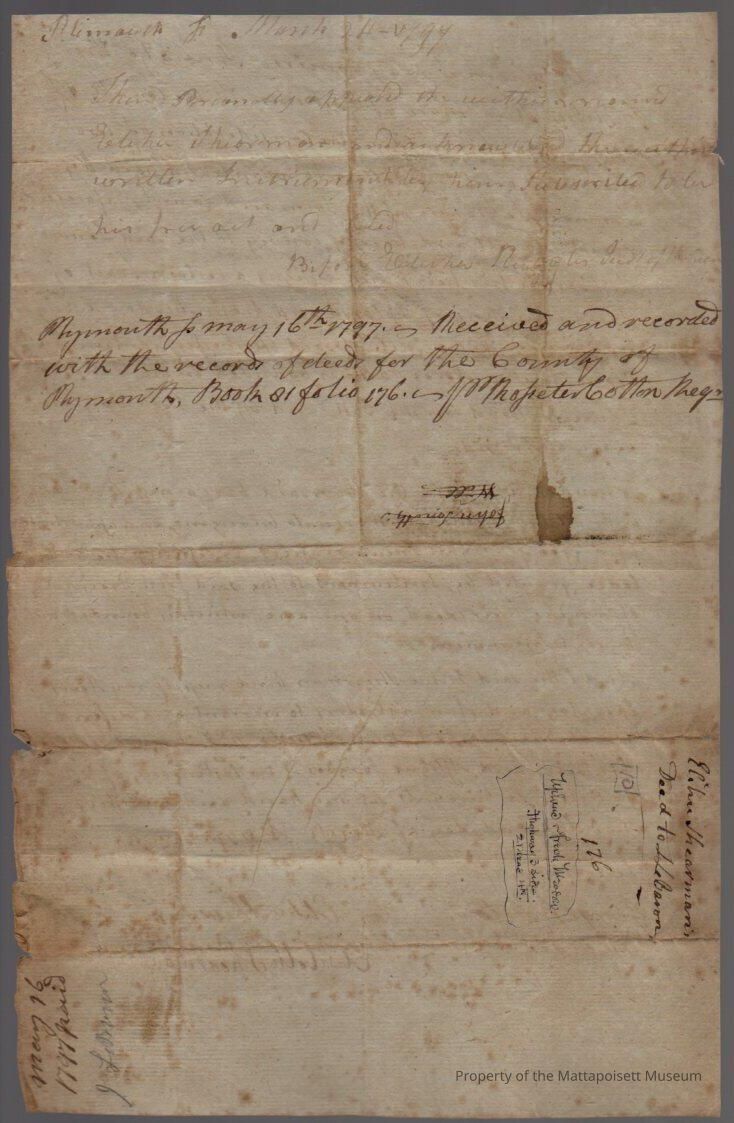 Plimouth ss March 24 - 1797
Then Personally appeared the within named
Elihu Shearman and acknowledged the within
written Instrument by him Subscribed to be
his free act and Deed
Before Elisha Ruggles Just of Peace
Plymouth ss may 16th 1797. Received and recorded
with the records of deeds for the County of
Plymouth, Book 81 folio 176. pr Rosseter Cotton Regr
Elihu Shearman's
Deed to LeBaron
110
176
Upland & Fresh Meadow
may 16
1797 paid
J LeBaron
Property of the Mattapoisett Museum